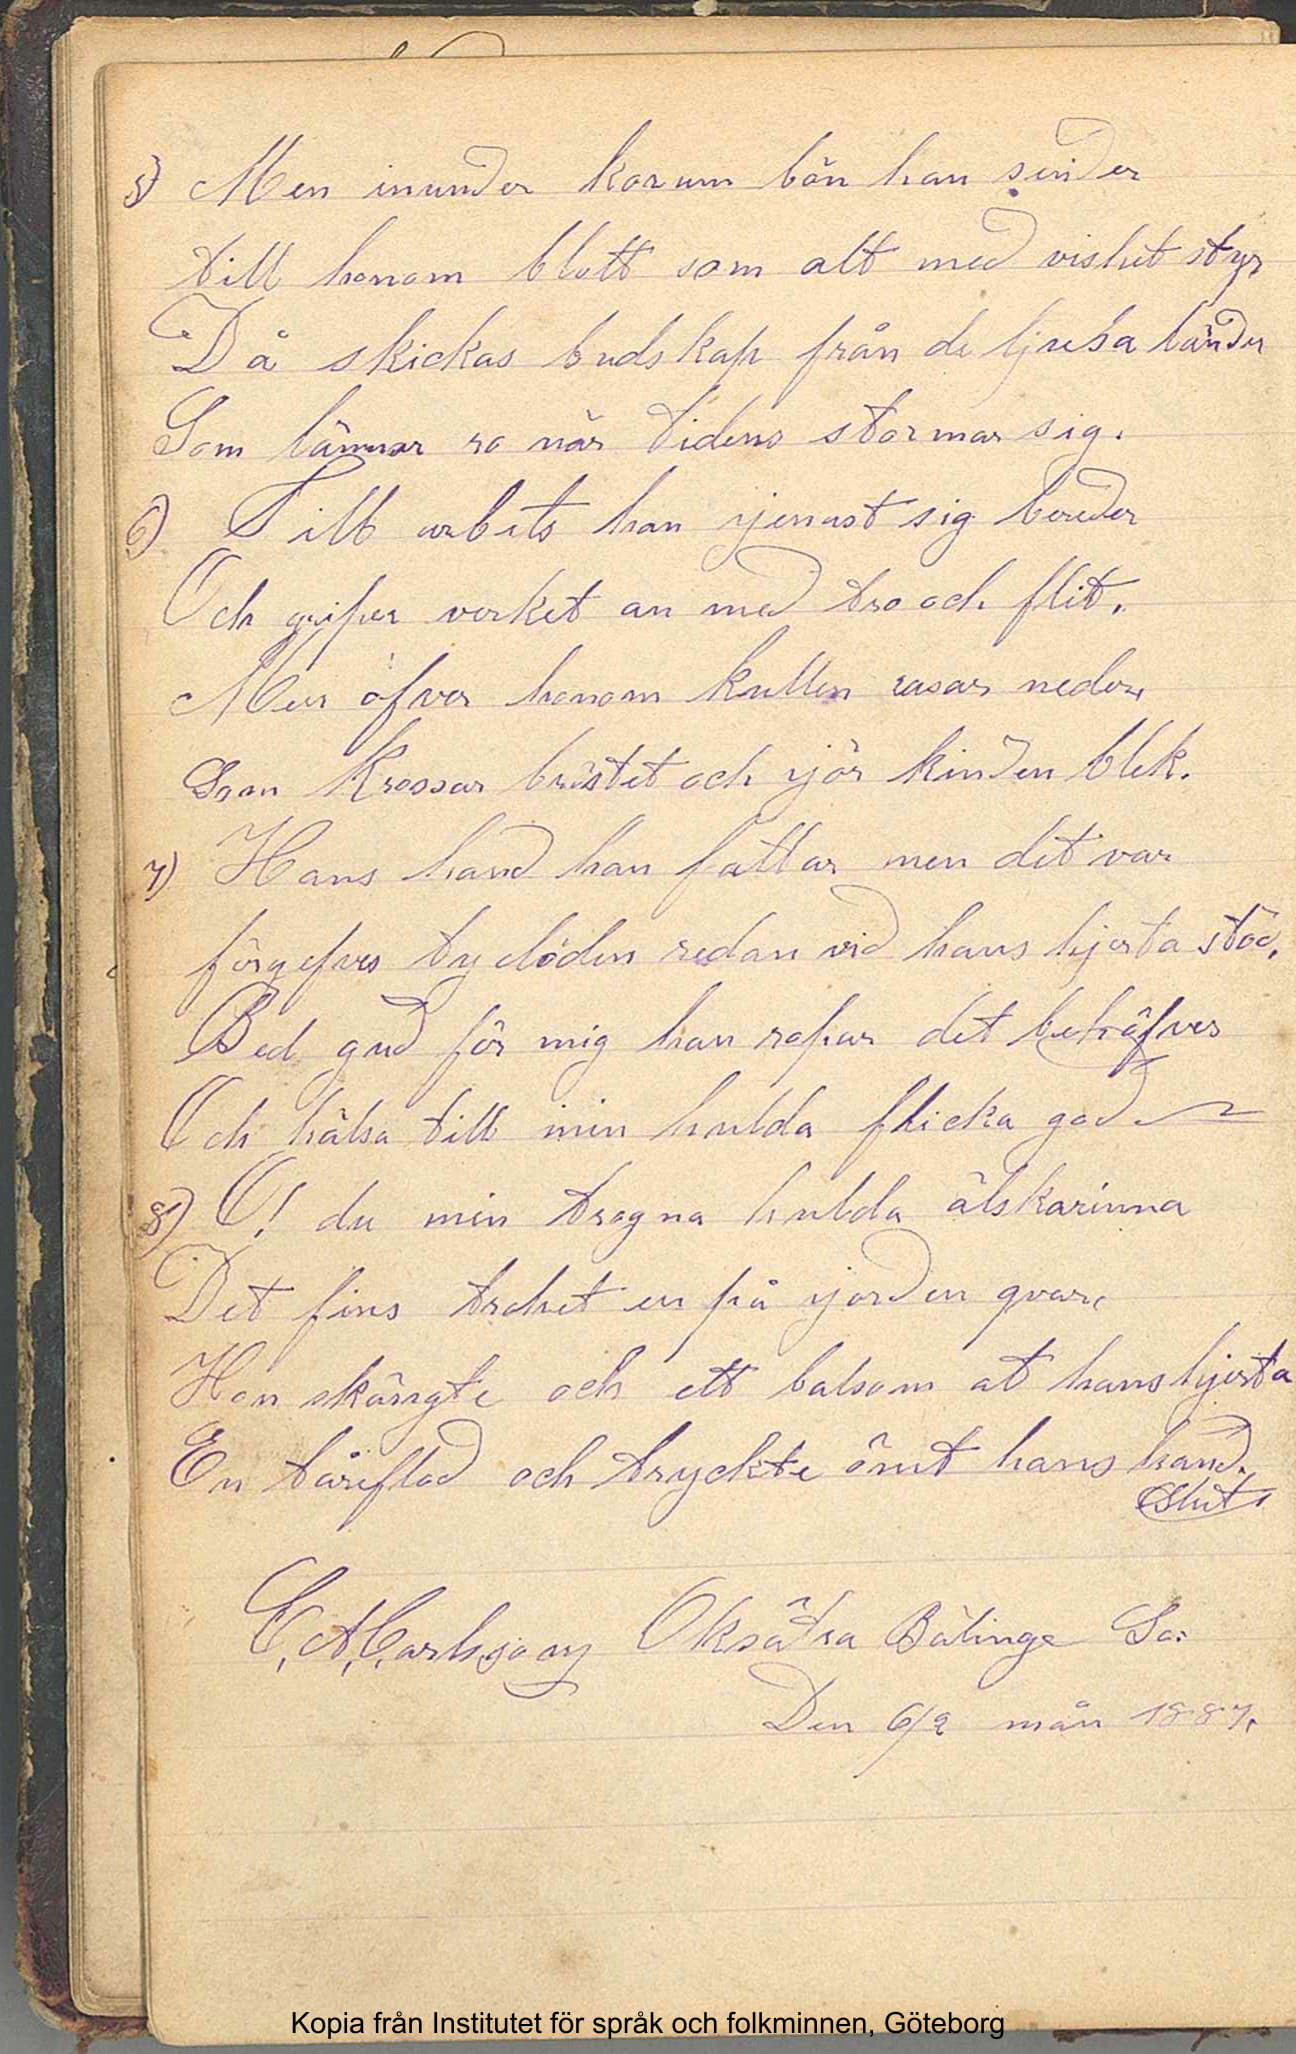 5) Men inunder korum bön han sänder
till honom blott som alt med vishet styr
Då skickas budskap från de ljusa länder
Som lämnar ro när tidens stormar sig.
6) Till arbets han genast sig bereder
Och griper verket an med tro och flit.
Men öfver honom kullen rasar neder,
Som krossar bröstet och gjör kinden blek.
7) Hans hand han fattar men det var
förgefves ty döden redan vid hans hjerta stod.
Bed gud för mig han ropar det behöfves
Och hälsa till min hulda flicka god
8) O! du min trogna hulda älskarinna
Det fins trohet en på jorden qvar,
Hon skängte och ett balsam at hans hjerta
En tåreflod och tryckte ömt hans hand.
Slut,
C, A, Carlsson Oksätra Bälinge So:
Den 6/2 mån 1887.
Kopia från Institutet för språk och folkminnen, Göteborg